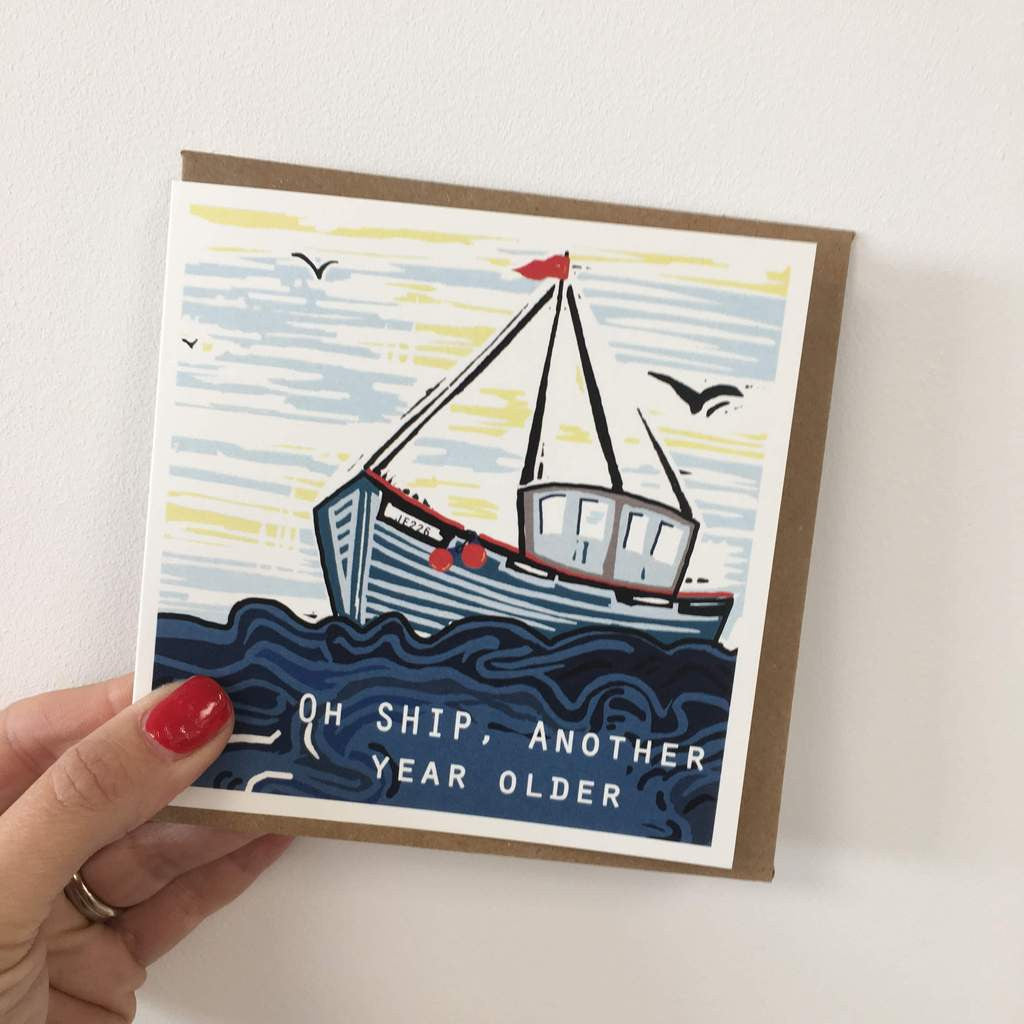 JE226
OH SHIP, ANOTHER
YEAR OLDER